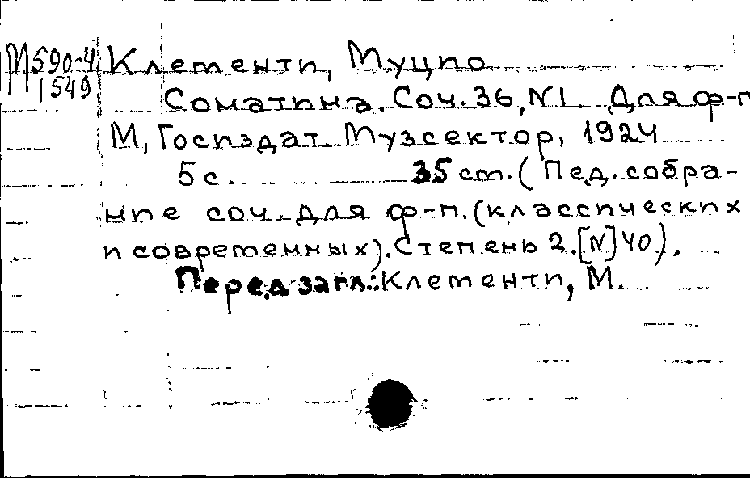 М590-4 Клементи, Муцио
1549
Сонатина. Соч. 36, N1. Для ф-п
М, Госиздат. Музсектор, 1924
5 с. 35 cm. (Пед. собра-
ние соч. для ф-п. (классических
и современных). Степень 2. [N] 40).
Перед загл.: Клементи, М.